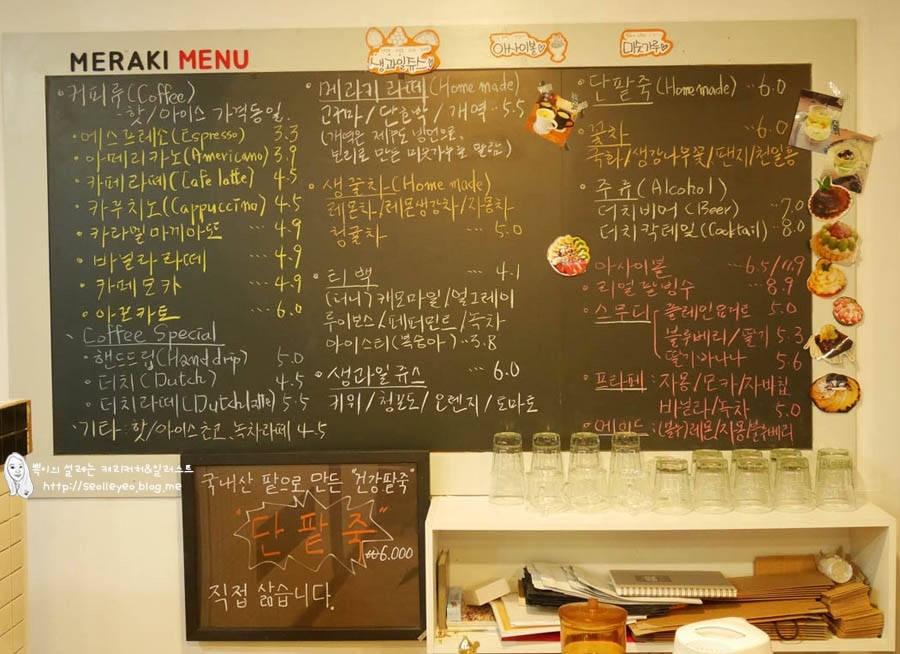 MERAKI MENU
생과일쥬스♡
아사이볼♡
미숫가루♡
• 커피류(Coffee)
핫/아이스 가격동일.
• 에스프레소(Espresso) 3.3
• 아메리카노(Americano) 3.9
• 카페라떼(Cafe latte) 4.5
• 카푸치노(Cappuccino) 4.5
• 카라멜마끼아또 ··· 4.9
• 바닐라라떼 ··· 4.9
• 카페모카 ··· 4.9
• 아포카토 ··· 6.0
Coffee Special
• 핸드드립(Hand drip) 5.0
• 더치(Dutch) 4.5
• 더치라떼(Dutch latte) 5.5
기타 · 핫/아이스초코, 녹차라떼 4.5
• 메라키라떼(Home made)
고구마/단호박/개역 ·· 5.5
(개역은 제주도 방언으로.
보리로 만든 미숫가루를 말함)
• 생꿀차-(Home made)
레몬차/레몬생강차/자몽차
청귤차 ··· 5.0
• 티백 ··· 4.1
(더니) 캐모마일/얼그레이
루이보스/페퍼민트/녹차
아이스티(복숭아) ·· 3.8
• 생과일쥬스 ··· 6.0
키위/청포도/오렌지/토마토
• 단팥죽(Homemade) ··· 6.0
• 꽃차 ··· 6.0
국화/생강나무꽃/팬지/천일홍
• 주류(Alcohol)
더치비어(Beer) ·· 7.0
더치칵테일(Cocktail) ·· 8.0
• 아사이볼 ··· 6.5/11.9
• 리얼팥빙수 ··· 8.9
• 스무디 플레인요거트 5.0
블루베리/딸기 5.3
딸기바나나 5.6
• 프라페 : 자몽/모카/자바칩
바닐라/녹차 5.0
• 에이드 : (블루)레몬/자몽/블루베리
국내산 팥으로 만든 "건강팥죽"
"단팥죽"
₩6.000
직접 삶습니다.
뿍이의 설레는 캐리커쳐&일러스트
http://seolleyeo.blog.me